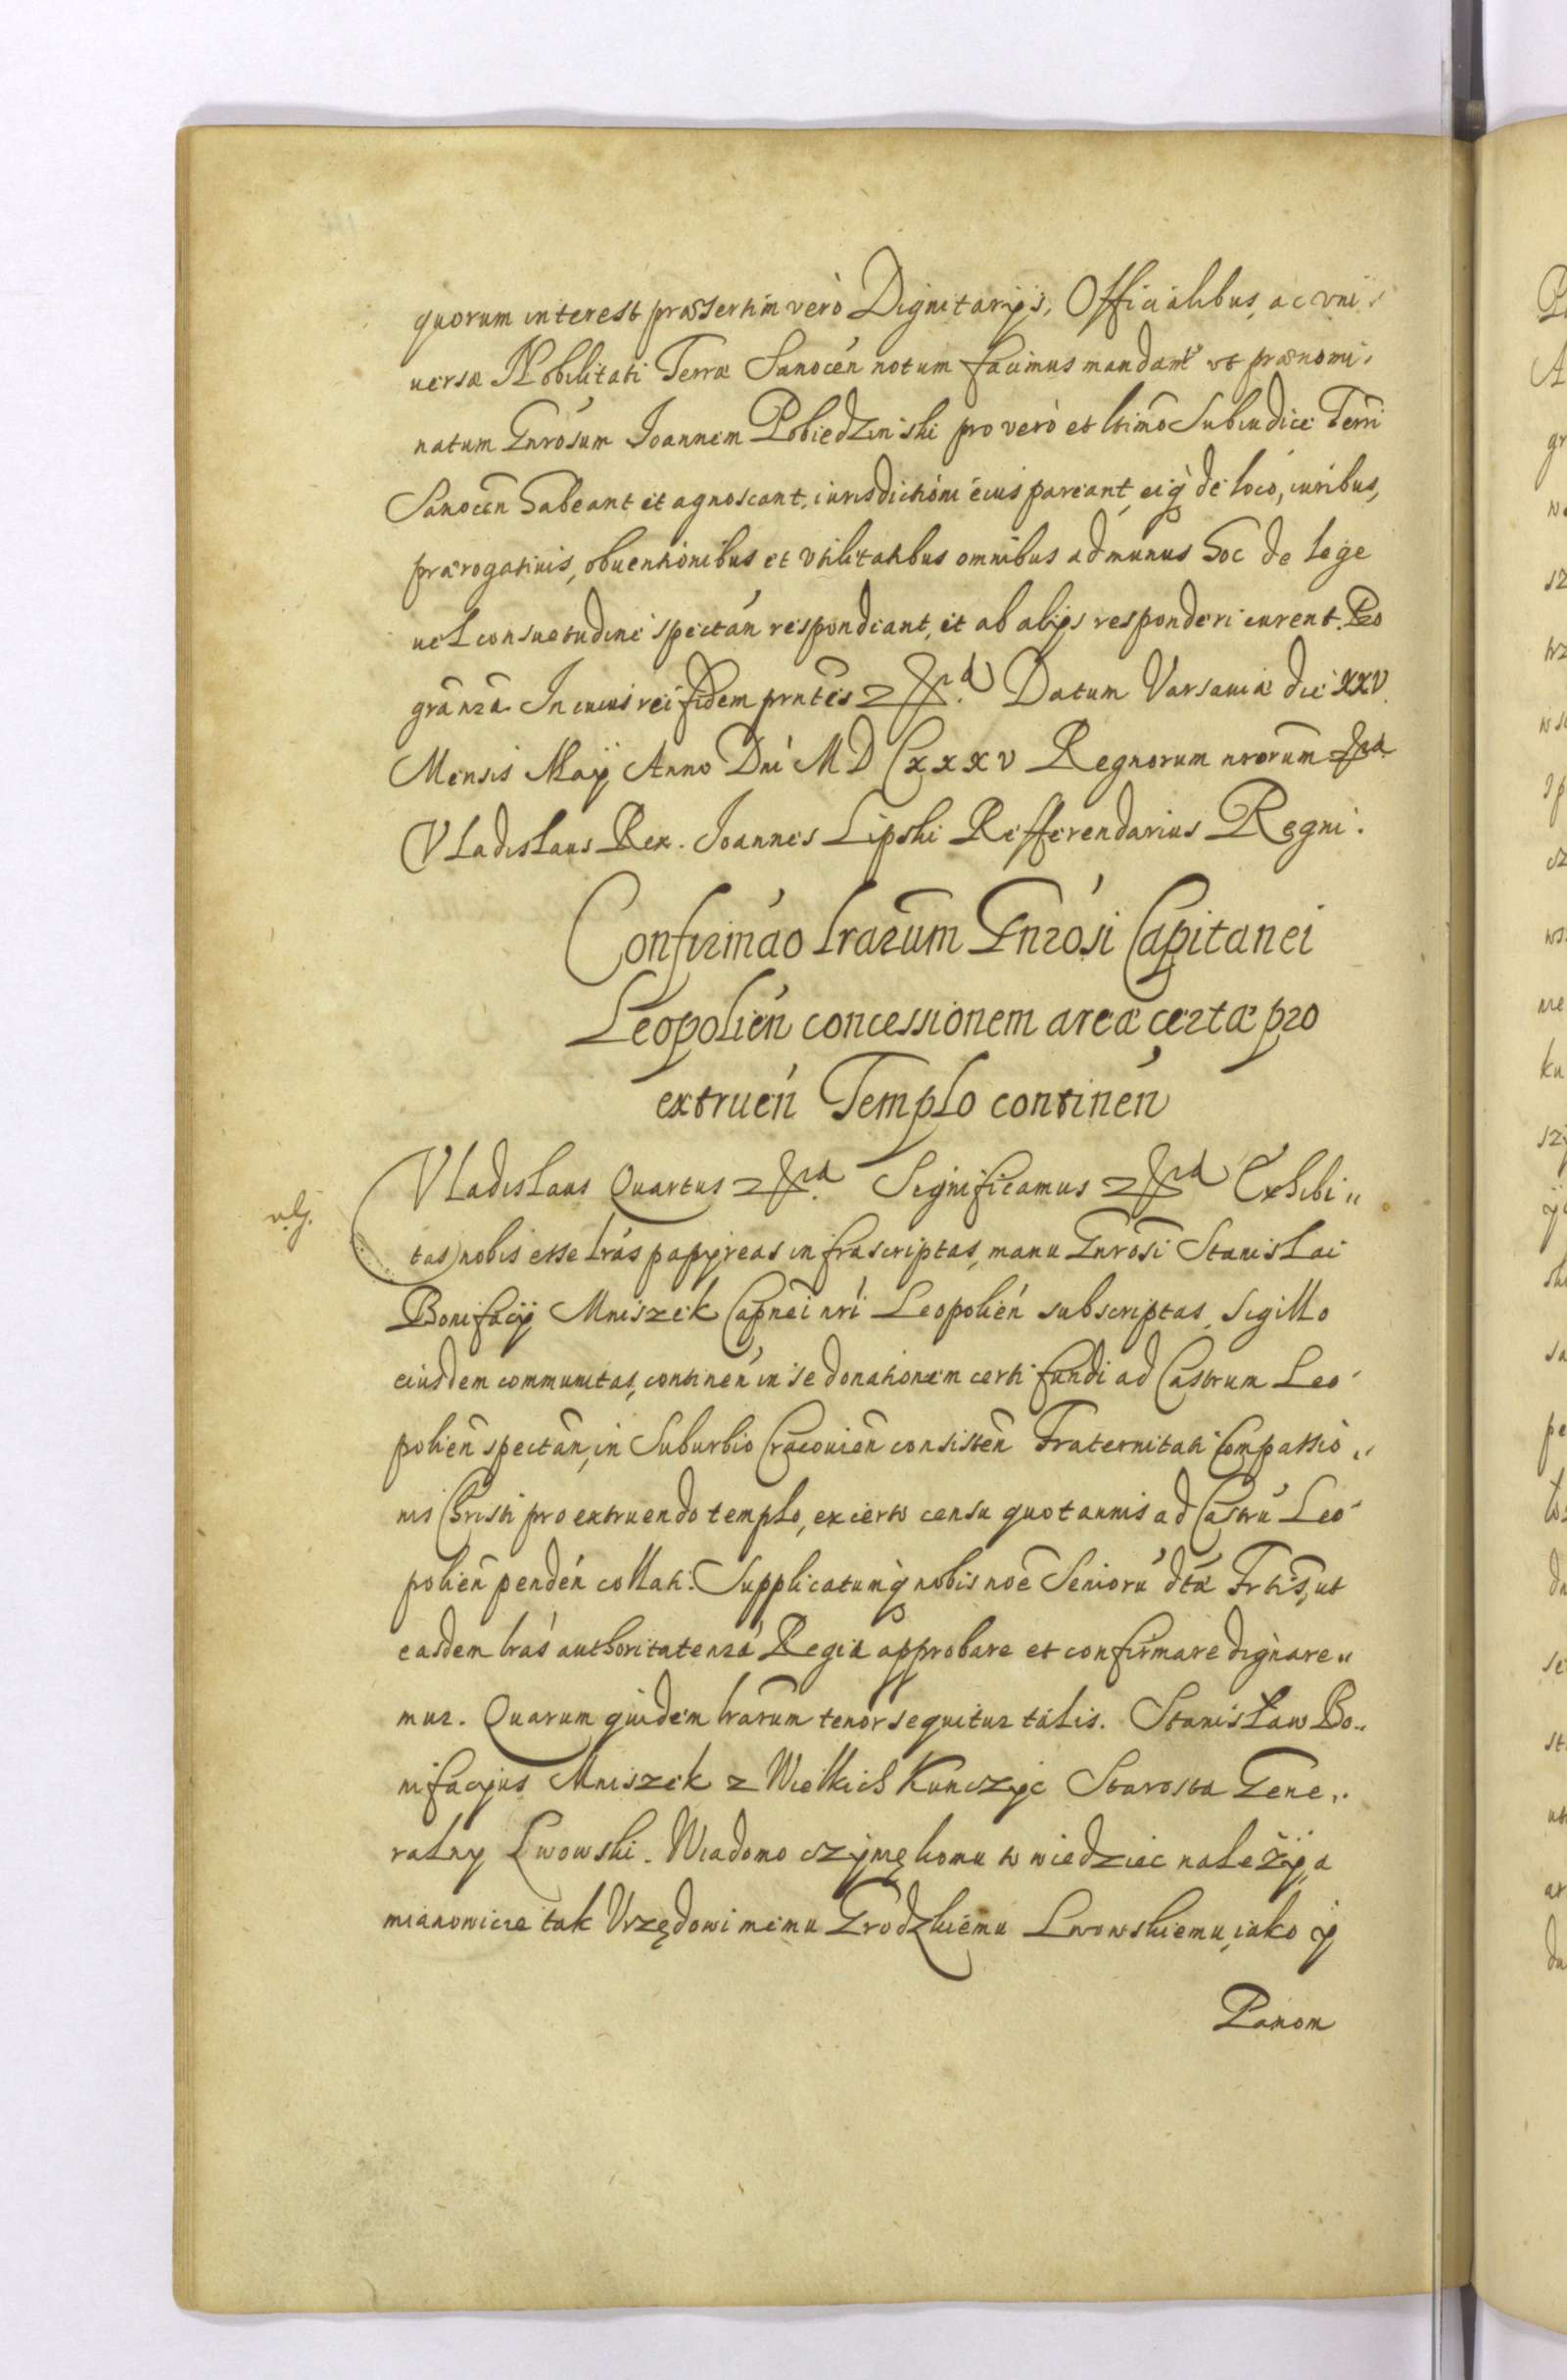 quorum interest præsertim verò Dignitarijs, Officialibus, ac vni
uersæ Nobilitati Terræ Sanocén notum facimus mandam̃s vt prænomi
natum Gnrósum Joannem Pobiedzinski pro verò et ltimo Subiudice Terri
Sanocen̄ habeant et agnoscant, iurisdictioni eius pareant, eiq̨ de loco, iuribus,
prærogatiuis, obuentionibus et vtilitatibus omnibus ad munus hoc de lege
uel consuetudine spectán respondeant, et ab alijs responderi curent. Pro
grãnrã. In cuius rei fidem prntẽs Datum Varsauiæ die XXV
Mensis Maij Anno Dni MDCXXXV Regnorum nrorum̃
Vladislaus Rex. Joannes Lipski Refferendarius Regni.
Confirmáo lrarum̃ Gnrósi Capitanei
Leopolién concessionem areæ certæ pro
extruén Templo continén
Vladislaus Quartus Significamus Exhibi„
tas nobis esse lrás papyreas infrascriptas, manu Gnrosi Stanislai
Bonifacij Mniszek Capnei nri Leopolién subscriptas, sigillo
eiusdem communitas, continén in se donationem certi fundi ad Castrum Leo
polien̄ spectan̄, in Suburbio Cracouien̄ consisten̄ Fraternitati Compassio„
nis Christi pro extruendo templo, ex certo censu quotannis ad Castrú Leo
polien̄ pendén collati. Supplicatumq̨ nobis noẽ Seniorú dtæ Frtis̃, ut
easdem lrás authoritate nrá Regia approbare et confirmare dignare„
mur. Quarum quidem lrarum tenor sequitur talis. Stanisław Bo„
nifacyus Mniszek z Wielkich Kunczyc Starosta Gene„
ralny Lwowski. Wiadomo czynię komu to wiedziec należy, a
mianowicie tak Vrzędowi memu Grodzkiemu Lwowskiemu, iako y
Panom